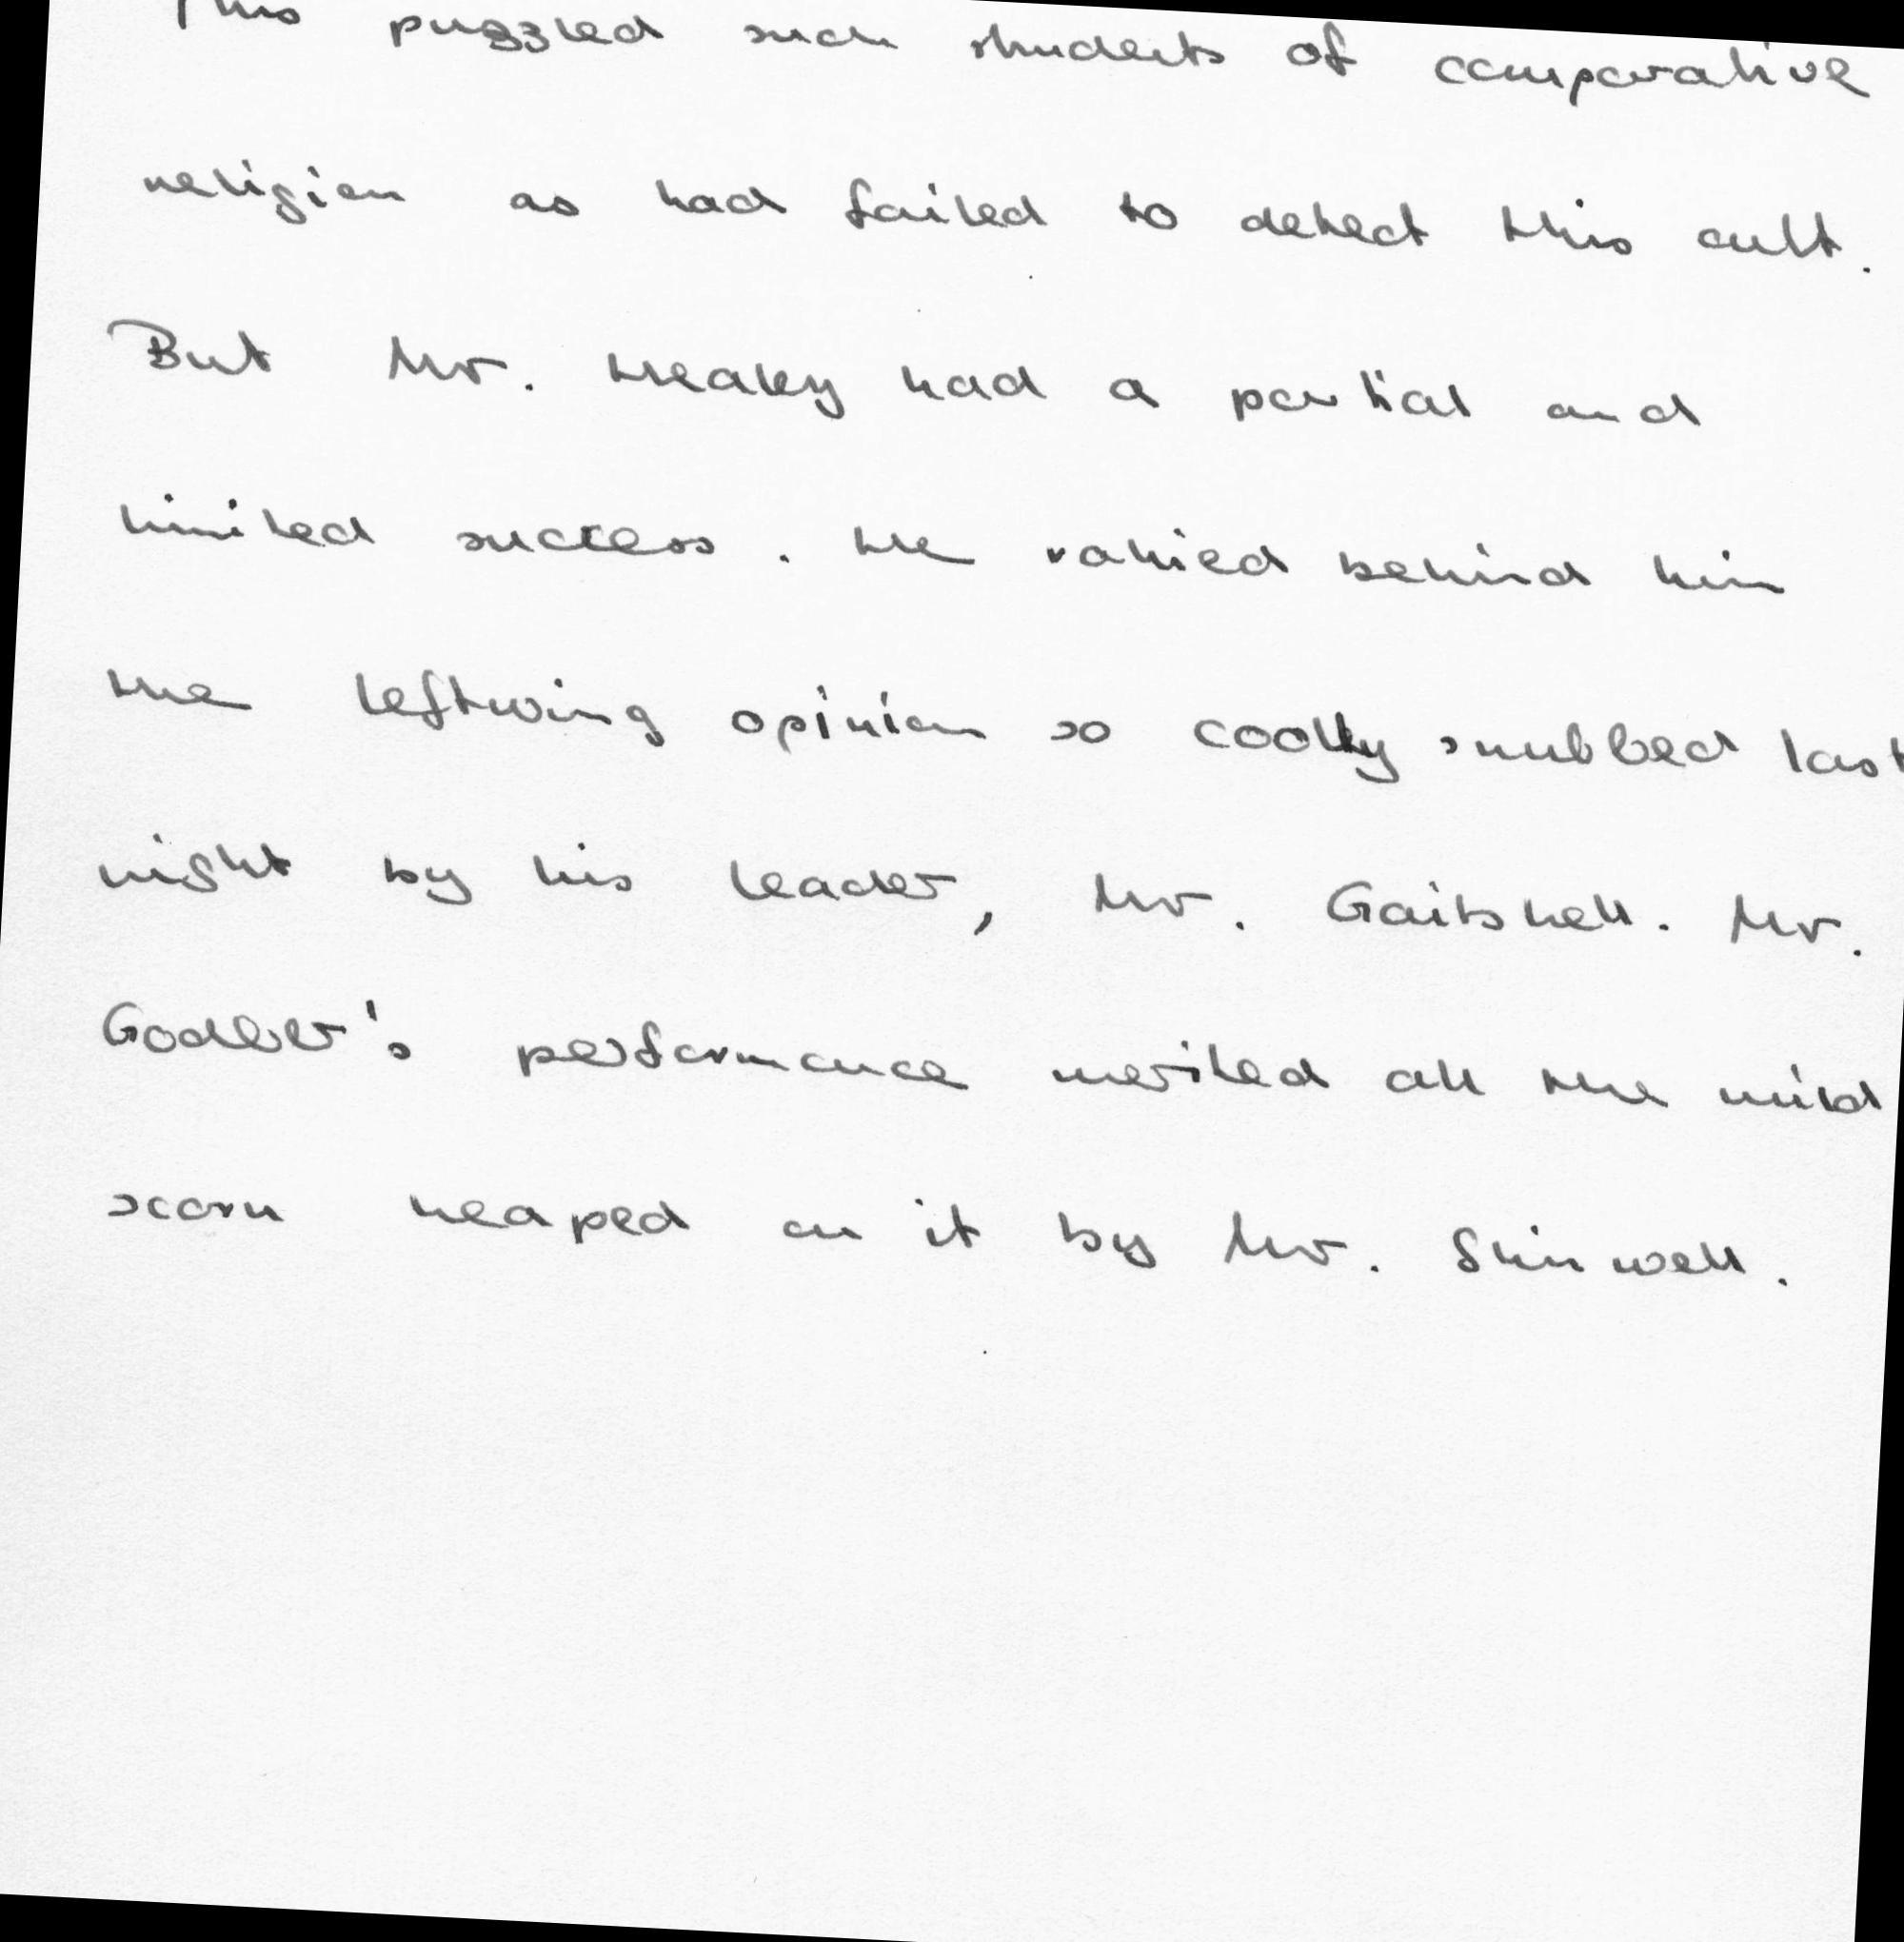 This puzzled such students of comparative
religion as had failed to detect this cult.
But Mr. Healey had a partial and
limited success. He rallied behind him
the leftwing opinion so coolly snubbed last
night by his leader, Mr. Gaitskell. Mr.
Godber's performance merited all the mild
scorn heaped on it by Mr. Shinwell.